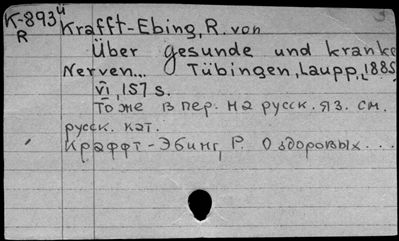 K-893 u
R
Krafft-Ebing, R. von
Über gesunde und kranke
Nerven... Tübingen, Laupp, 1885.
VI, 157 s.
То же в пер. на русск. яз. см.
русск. кат.
Краффт-Эбинг, Р. О здоровых...